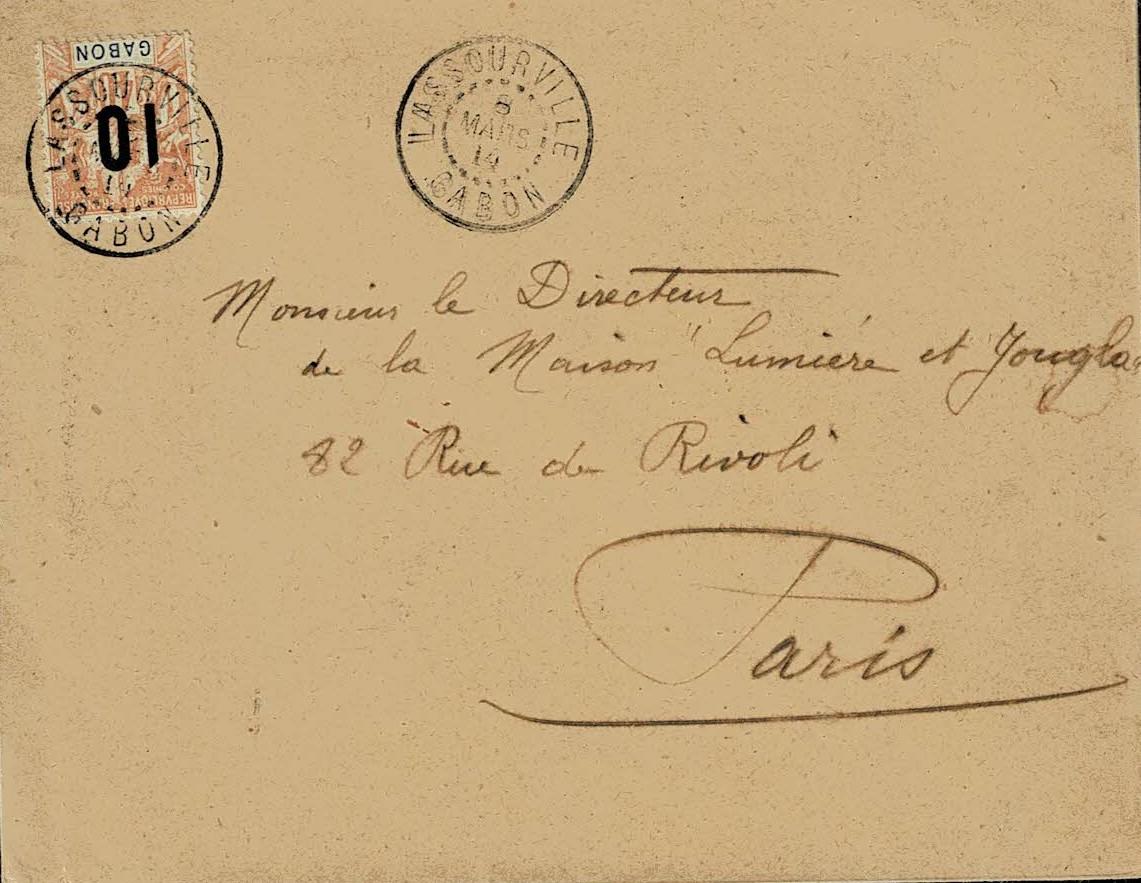 GABON
10
REPUBLIQUE FRANÇAISE
COLONIES
LASSOURVILLE
14
GABON
LASSOURVILLE
8
MARS
14
GABON
Monsieur le Directeur
de la Maison "Lumière et Jougla
82 Rue de Rivoli
Paris